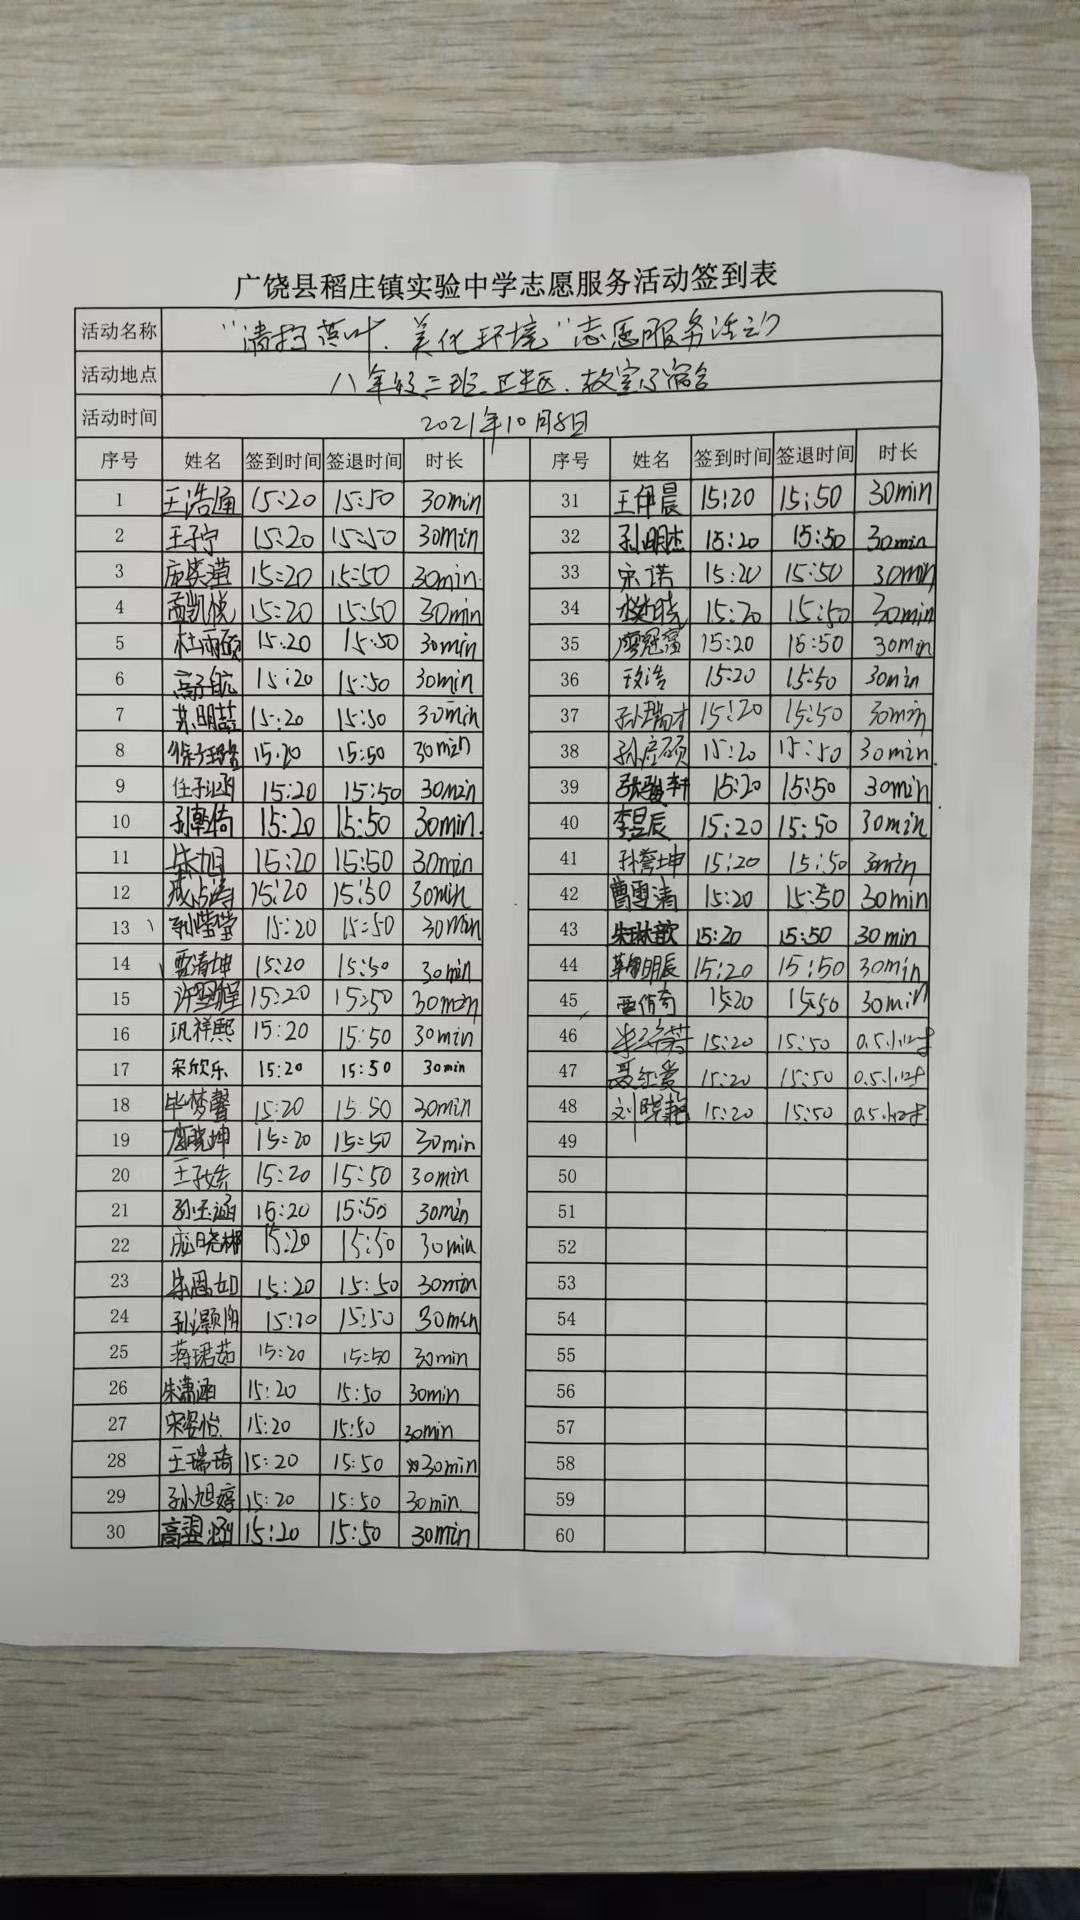 广饶县稻庄镇实验中学志愿服务活动签到表
活动名称 "清扫落叶、美化环境"志愿服务活动
活动地点 八年级三班卫生区、教室及宿舍
活动时间 2021年10月8日
序号 姓名 签到时间 签退时间 时长 序号 姓名 签到时间 签退时间 时长
1 王浩通 15:20 15:50 30min 31 王伊晨 15:20 15:50 30min
2 王子宁 15:20 15:50 30min 32 孙明杰 15:20 15:50 30min
3 15:20 15:50 30min 33 宋诺 15:20 15:50 30min
4 孟凯悦 15:20 15:50 30min 34 15:20 15:50 30min
5 杜雨硕 15:20 15:50 30min 35 廖冠富 15:20 15:50 30min
6 高子航 15:20 15:50 30min 36 15:20 15:50 30min
7 苏明喆 15:20 15:50 30min 37 孙瑞才 15:20 15:50 30min
8 徐子璐 15:20 15:50 30min 38 孙彦硕 15:20 15:50 30min
9 任子涵 15:20 15:50 30min 39 张骏轩 15:20 15:50 30min
10 孙乾倚 15:20 15:50 30min 40 李昱辰 15:20 15:50 30min
11 朱旭 15:20 15:50 30min 41 孙誉坤 15:20 15:50 30min
12 成占涛 15:20 15:50 30min 42 曹雯清 15:20 15:50 30min
13 孙莹莹 15:20 15:50 30min 43 朱琳歆 15:20 15:50 30min
14 贾清坤 15:20 15:50 30min 44 15:20 15:50 30min
15 许程 15:20 15:50 30min 45 贾倚奇 15:20 15:50 30min
16 巩祥熙 15:20 15:50 30min 46 15:20 15:50 0.5小时
17 宋欣乐 15:20 15:50 30min 47 聂红爱 15:20 15:50 0.5小时
18 毕梦馨 15:20 15:50 30min 48 刘晓艳 15:20 15:50 0.5小时
19 廖晓坤 15:20 15:50 30min 49
20 王子婍 15:20 15:50 30min 50
21 孙玉涵 15:20 15:50 30min 51
22 庞晓彬 15:20 15:50 30min 52
23 朱思如 15:20 15:50 30min 53
24 孙灏冉 15:20 15:50 30min 54
25 蒋珺茹 15:20 15:50 30min 55
26 朱潇涵 15:20 15:50 30min 56
27 宋姿怡 15:20 15:50 30min 57
28 王瑞琦 15:20 15:50 30min 58
29 孙旭婷 15:20 15:50 30min 59
30 高翌涵 15:20 15:50 30min 60